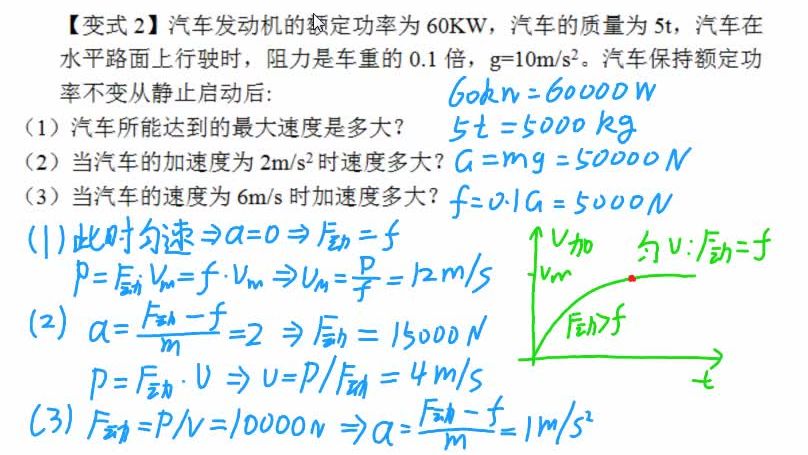 【变式 2】汽车发动机的额定功率为 60KW，汽车的质量为 5t，汽车在
水平路面上行驶时，阻力是车重的 0.1 倍，g=10m/s²。汽车保持额定功
率不变从静止启动后:
60kw=60000W
（1）汽车所能达到的最大速度是多大？
5t=5000kg
（2）当汽车的加速度为 2m/s² 时速度多大？
G=mg=50000N
（3）当汽车的速度为 6m/s 时加速度多大？
f=0.1G=5000N
(1)此时匀速⇒a=0⇒F动=f
P=F动·Vm=f·Vm⇒Vm=P/f=12m/s
(2) a=(F动-f)/m=2 ⇒F动=15000N
P=F动·V ⇒V=P/F动=4m/s
(3) F动=P/V=10000N ⇒a=(F动-f)/m=1m/s²
V加
匀V:F动=f
Vm
F动>f
t